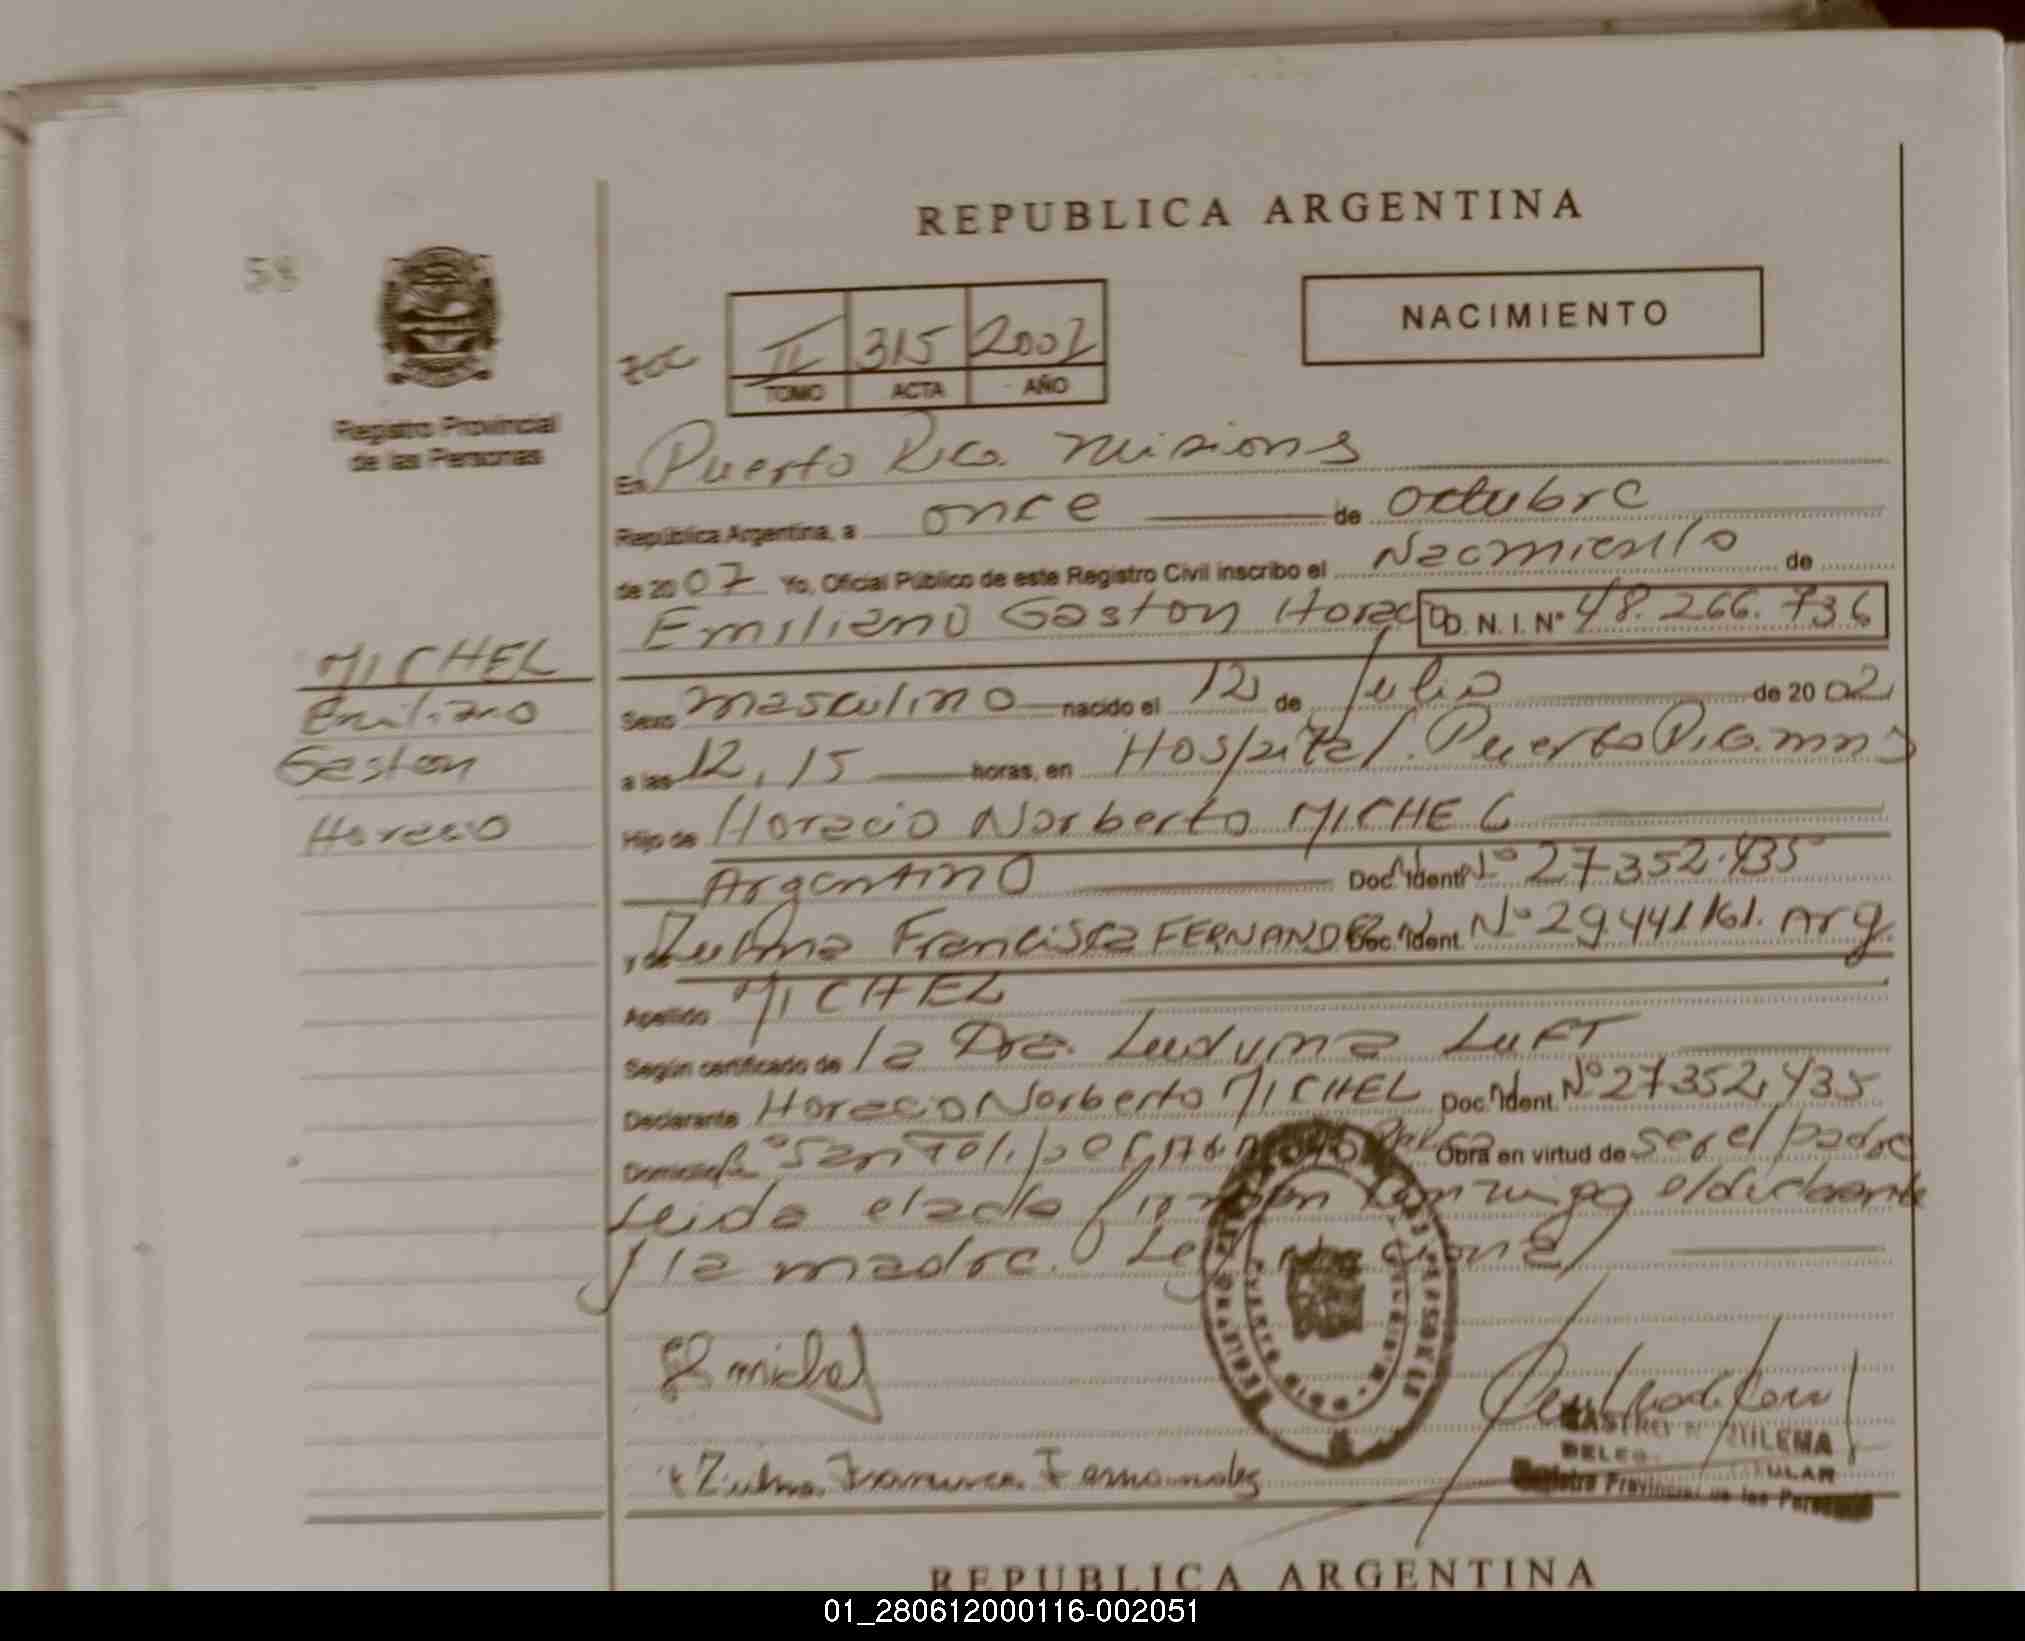 REPUBLICA ARGENTINA
58
NACIMIENTO
II 315 2007
TOMO ACTA AÑO
Registro Provincial
de las Personas
En Puerto Rico. Misiones
República Argentina, a once de octubre
de 2007 Yo, Oficial Público de este Registro Civil inscribo el Nacimiento de
Emiliano Gaston Horacio D. N. I. N° 48.266.736
MICHEL
Emiliano
Gaston
Horacio
Sexo masculino nacido el 12 de Julio de 2002
a las 12,15 horas, en Hospital. Puerto Rico. mns
Hijo de Horacio Norberto MICHEL
Argentino Doc. Ident. N° 27352.435
y de Zulma Francisca FERNANDEZ Doc. Ident. N° 29441161. Arg.
Apellido MICHEL
Según certificado de la Dra. Luduvina LUFT
Declarante Horacio Norberto MICHEL Doc. Ident. N° 27352,435
Domicilio Obra en virtud de ser el padre
Leida el acta firman conmigo el declarante
y la madre.
Michel
Zulma Francisca Fernandez
Registro Provincial de las Personas
REPUBLICA ARGENTINA
01_280612000116-002051